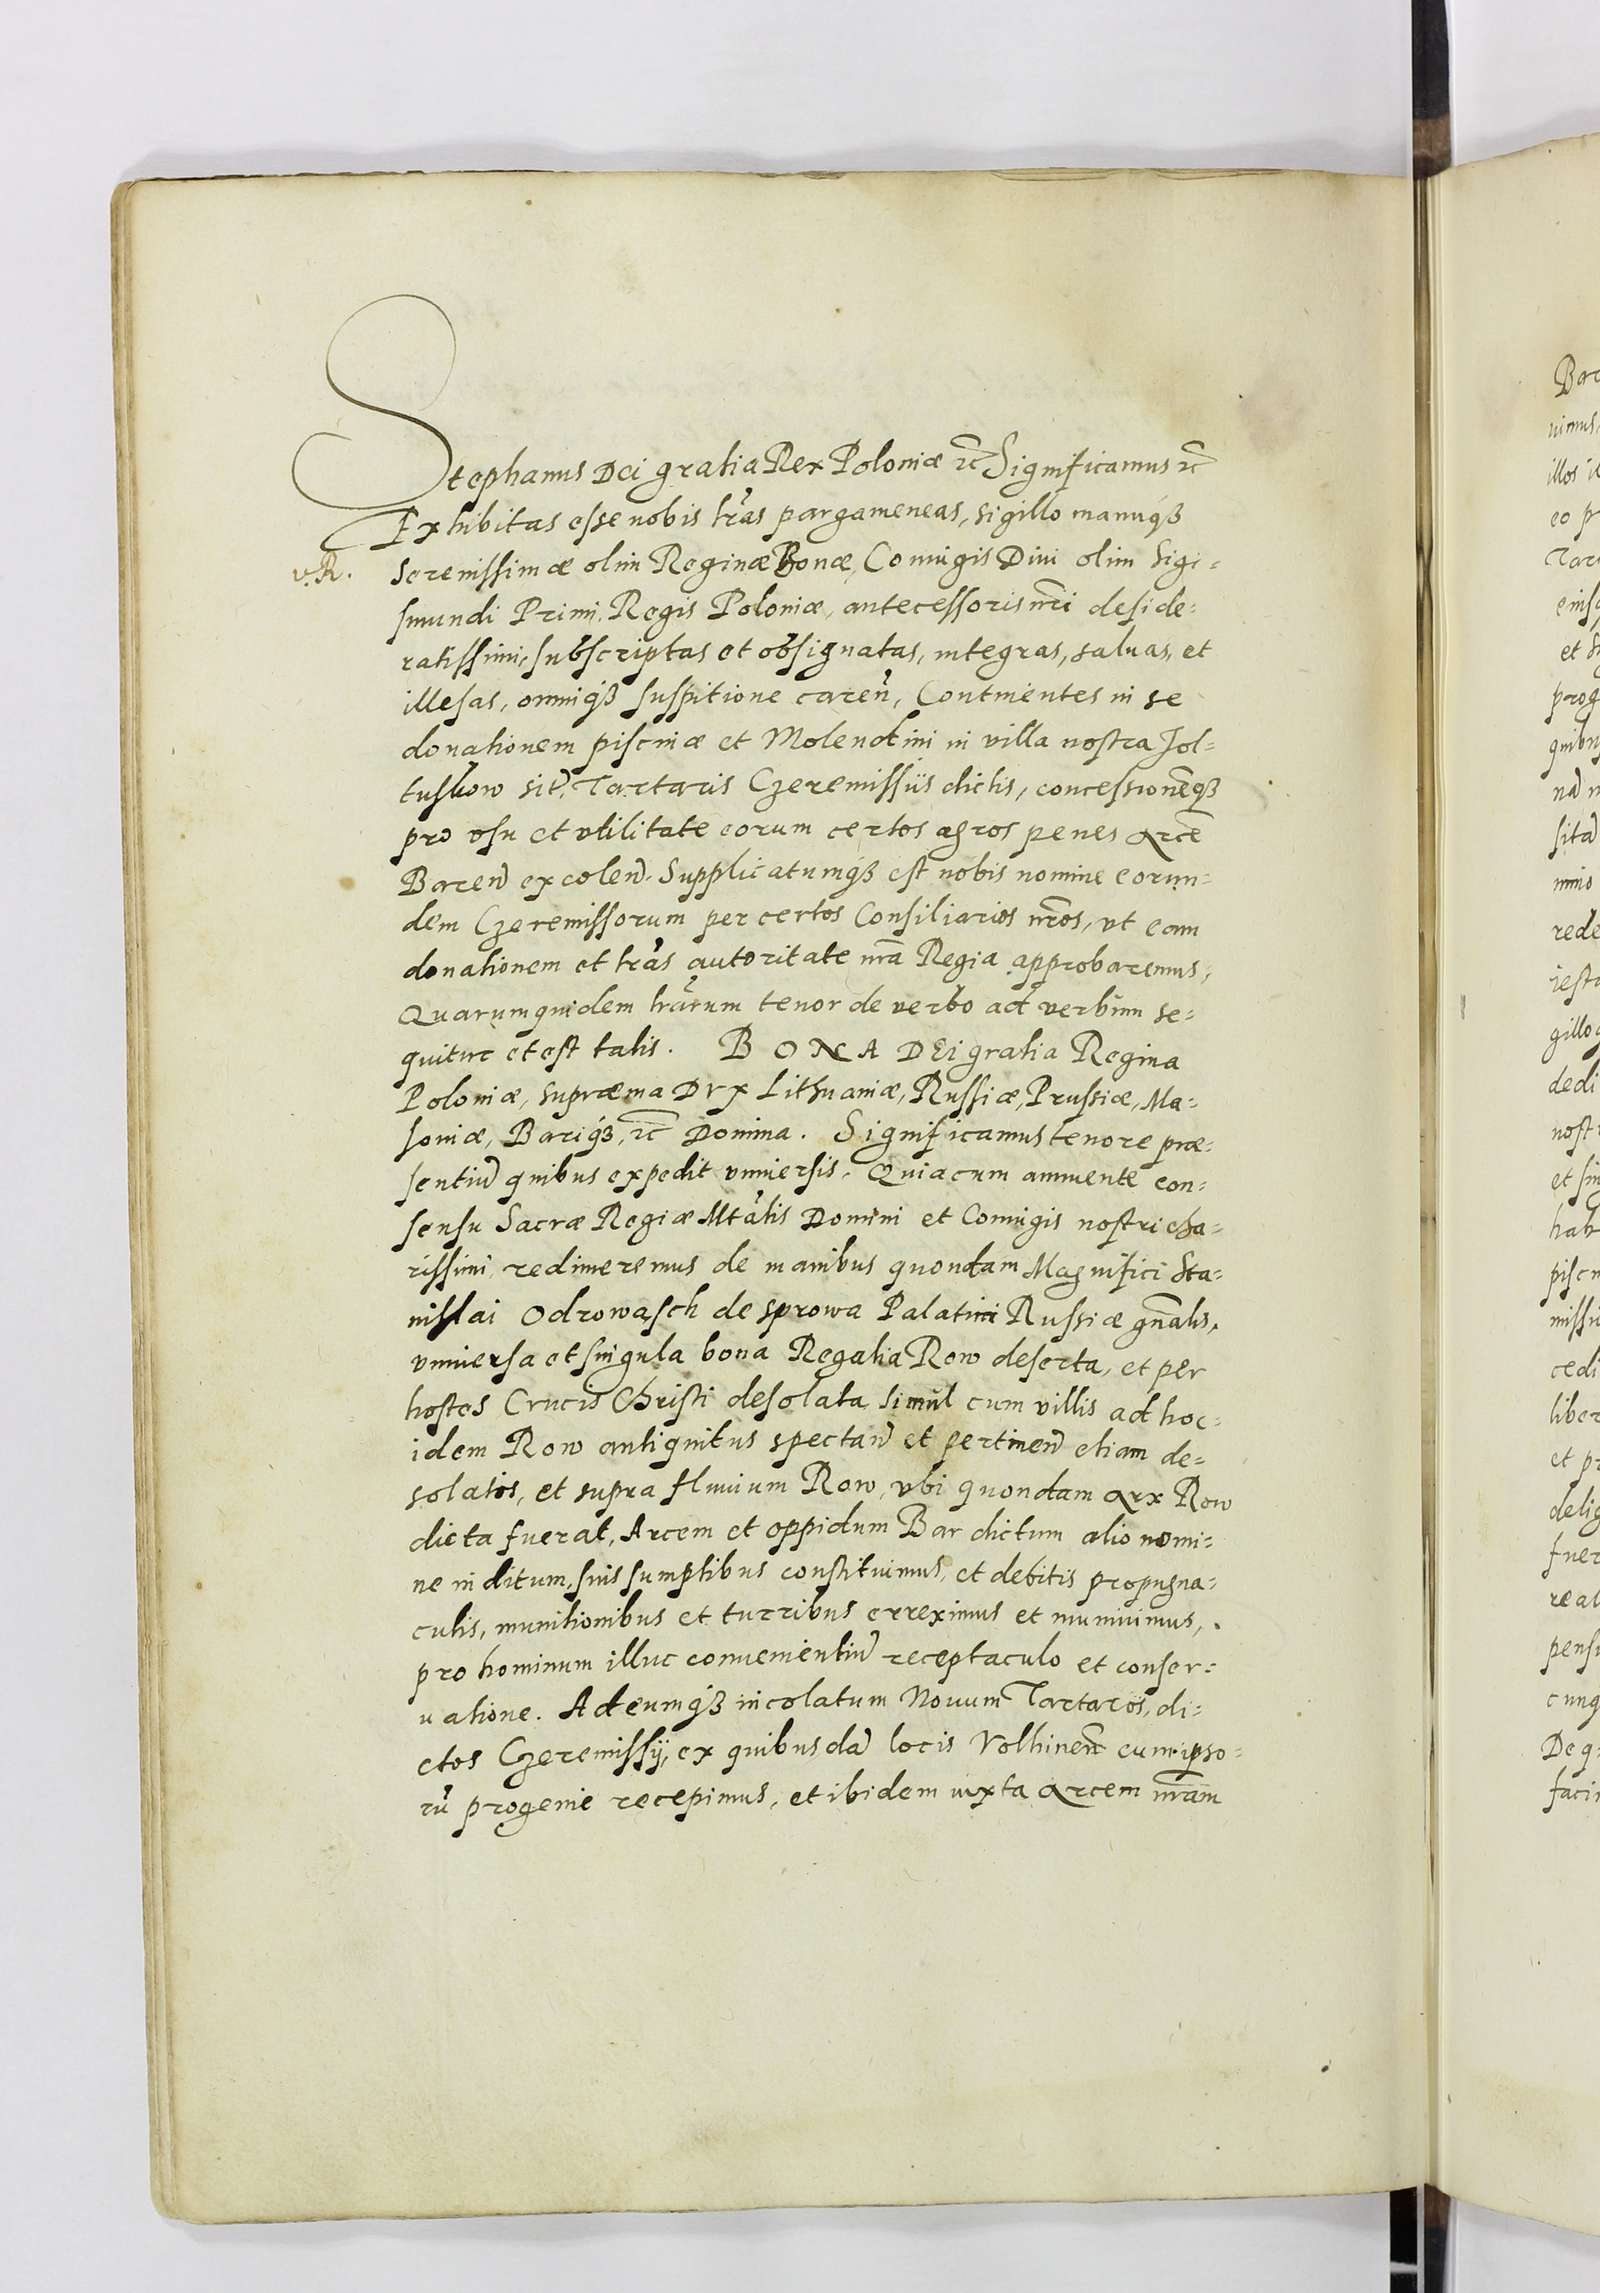 Stephanus Dei gratia Rex Poloniæ ꝛc̄ Significamus ꝛc̄
Exhibitas esse nobis lr̃as pargameneas, sigillo manuq́ꝫ
v. R. Serenissimæ olim Reginæ Bonæ, Coniugis Diui olim Sigi=
smundi Primi Regis Poloniæ, antecessoris nr̃i deside=
ratissimi, subscriptas et obsignatas, integras, saluas, et
illesas, omniq́ꝫ suspitione careñ, Continentes in se
donationem piscinæ et Molendini in villa nostra Jol=
tuskow sit̃, Tartaris Czeremissiis dictis, concessionẽqꝫ
pro vsu et vtilitate eorum certos agros penes Arcẽ
Bareñ excoleñ. Supplicatumq́ꝫ est nobis nomine eorun=
dem Czeremissorum per certos Consiliarios nr̃os, vt eam
donationem et lr̃as autoritate nr̃a Regia approbaremus,
Quarumquidem lr̃arum tenor de verbo ad verbum se=
quitur et est talis. BONA DEi gratia Regina
Poloniæ, supræma Dvx Lithuaniæ, Russiæ, Prussiæ, Ma=
soniæ, Bariq́ꝫ, ꝛc̄ Domina. Significamus tenore præ=
sentiũ quibus expedit vniuersis. Quia cum annuente con=
sensu Sacræ Regiæ Mtãtis Domini et Coniugis nostri cha=
rissimi, redimeremus de manibus quondam Magnifici Sta=
nislai Odrowasch de Sprowa Palatini Russiæ gñalis,
vniuersa et singula bona Regalia Row deserta, et per
hostes Crucis Christi desolata simul cum villis ad hoc=
idem Row antiquitus spectañ et pertineñ etiam de=
solatos, et supra fluuium Row, vbi quondam Arx Row
dicta fuerat, Arcem et oppidum Bar dictum alio nomi=
ne inditum, suis sumptibus constituimus, et debitis propugna=
culis, munitionibus et turribus erreximus et muniuimus,
pro hominum illuc conuenientiũ receptaculo et conser=
uatione. Ad eumq́ꝫ incolatum Nouum Tartaros, di=
ctos Czeremissÿ, ex quibusdã locis Volhineñ cum ipso=
rũ progenie recepimus, et ibidem iuxta Arcem nr̃am